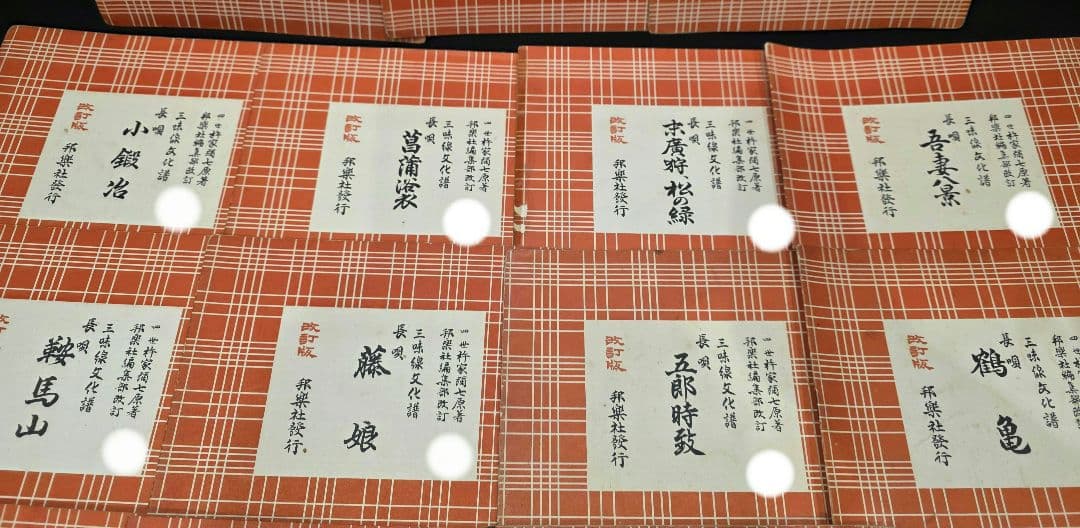 四世杵家彌七原著
邦樂社編集部改訂
三味線文化譜
長唄
小鍛冶
改訂版
邦樂社發行
四世杵家彌七原著
邦樂社編集部改訂
三味線文化譜
長唄
菖蒲浴衣
改訂版
邦樂社發行
四世杵家彌七原著
邦樂社編集部改訂
三味線文化譜
長唄
末廣狩、松の緑
改訂版
邦樂社發行
四世杵家彌七原著
邦樂社編集部改訂
三味線文化譜
長唄
吾妻八景
改訂版
邦樂社發行
四世杵家彌七原著
邦樂社編集部改訂
三味線文化譜
長唄
鞍馬山
四世杵家彌七原著
邦樂社編集部改訂
三味線文化譜
長唄
藤娘
改訂版
邦樂社發行
四世杵家彌七原著
邦樂社編集部改訂
三味線文化譜
長唄
五郎時致
改訂版
邦樂社發行
四世杵家彌七原
邦樂社編集部改訂
三味線文化譜
長唄
鶴亀
改訂版
邦樂社發行